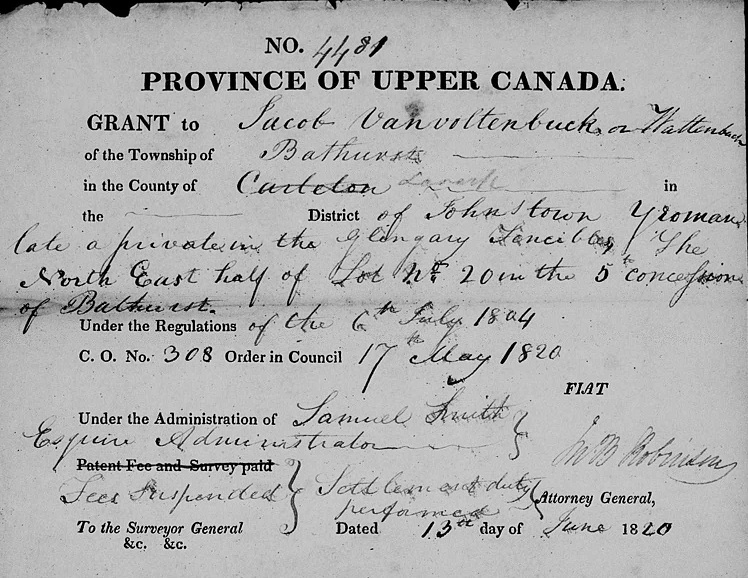 NO. 4481
PROVINCE OF UPPER CANADA.
GRANT to Jacob Vanvoltenbuck, or Wattenbuck
of the Township of Bathurst
in the County of Carleton Lanark in
the District of Johnstown Yeoman
late a private in the Glengary Fencibles, The
North East half of Lot No. 20 in the 5th concession
of Bathurst.
Under the Regulations of the 6th July 1804
C. O. No. 308 Order in Council 17th May 1820
FIAT
Under the Administration of Samuel Smith
Esquire Administrator
Jno B Robinson
Patent Fee and Survey paid
Fees Suspended Settlement duty
performed
Attorney General,
To the Surveyor General Dated 13th day of June 1820
&c. &c.